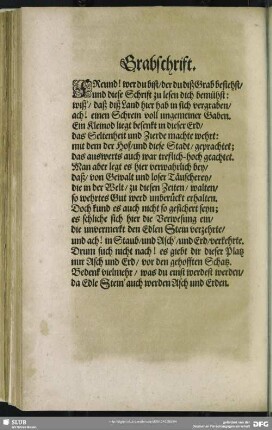 Grabschrift.
FReund! wer du bist/ der du diß Grab besiehst/
und diese Schrift zu lesen dich bemühst:
wiß/ daß diß Land hier hab in sich vergraben/
ach! einen Schrein voll ungemeiner Gaben.
Ein Kleinod liegt besenkt in dieser Erd/
das Seltenheit und Zierde machte wehrt:
mit dem der Hof/ und diese Stadt/ geprachtet;
das auswerts auch war treflich-hoch geachtet.
Man aber legt es hier verwahrlich bey/
daß/ von Gewalt und loser Täuscherey/
die in der Welt/ zu diesen Zeiten/ walten/
so wehrtes Gut werd unberückt erhalten.
Doch kund es auch nicht so gesichert seyn;
es schliche sich hier die Verwesung ein/
die unvermerkt den Edlen Stein verzehrte/
und ach! in Staub/ und Asch/ und Erd/ verkehrte.
Drum such nicht nach! es giebt dir dieser Platz
nur Asch und Erd/ vor den gehofften Schatz.
Bedenk vielmehr/ was du einst werdest werden/
da Edle Stein' auch werden Asch und Erden.
SLUB
DFG